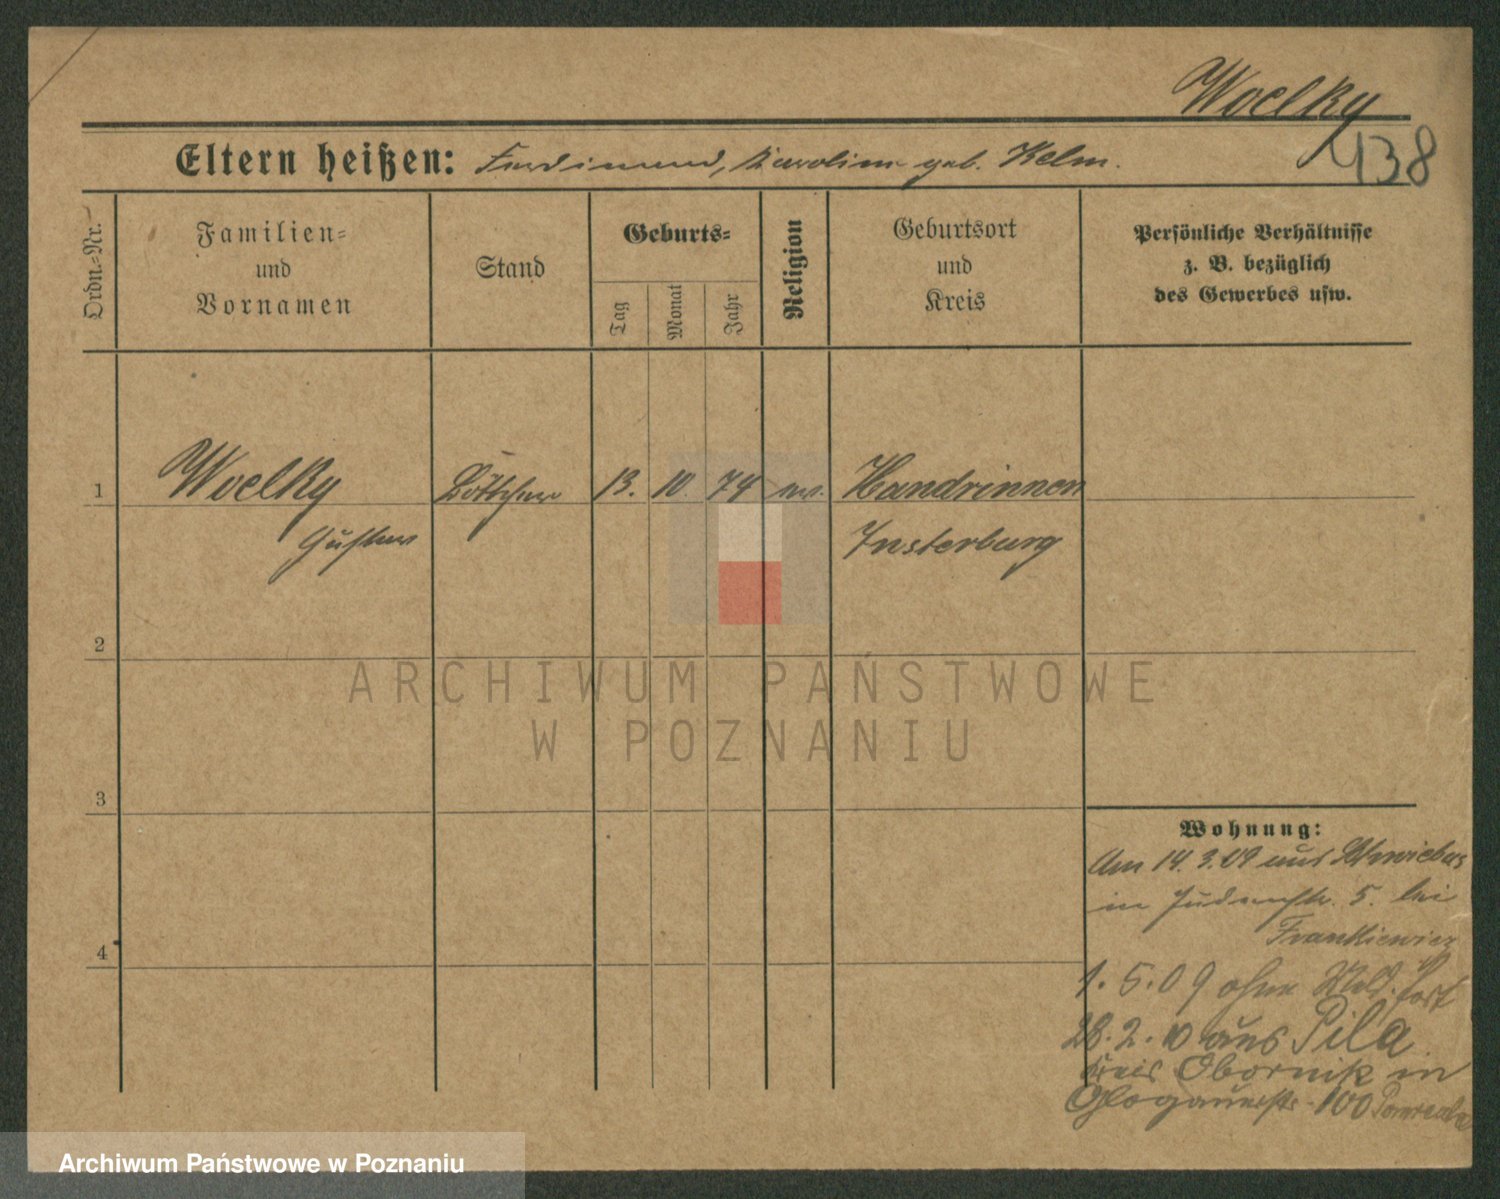 Woelky
138
Eltern heißen: Ferdinand, Karoline geb. Kelm.
Ordn.-Nr.
Familien-
und
Vornamen
Stand
Geburts-
Tag
Monat
Jahr
Religion
Geburtsort
und
Kreis
Persönliche Verhältnisse
z. B. bezüglich
des Gewerbes usw.
1
Woelky
Gustav
Böttcher
13. 10. 74 ev.
Kandrinnen
Insterburg
2
ARCHIWUM PAŃSTWOWE
W POZNANIU
3
4
Wohnung:
Am 14.3.09 aus Schwiebus
in Judenstr. 5. bei
Frankiewicz
1.5.09 ohne Meld. fort
28.2.10 aus Pila
Kreis Obornik in
Glogauerstr. 100
Archiwum Państwowe w Poznaniu